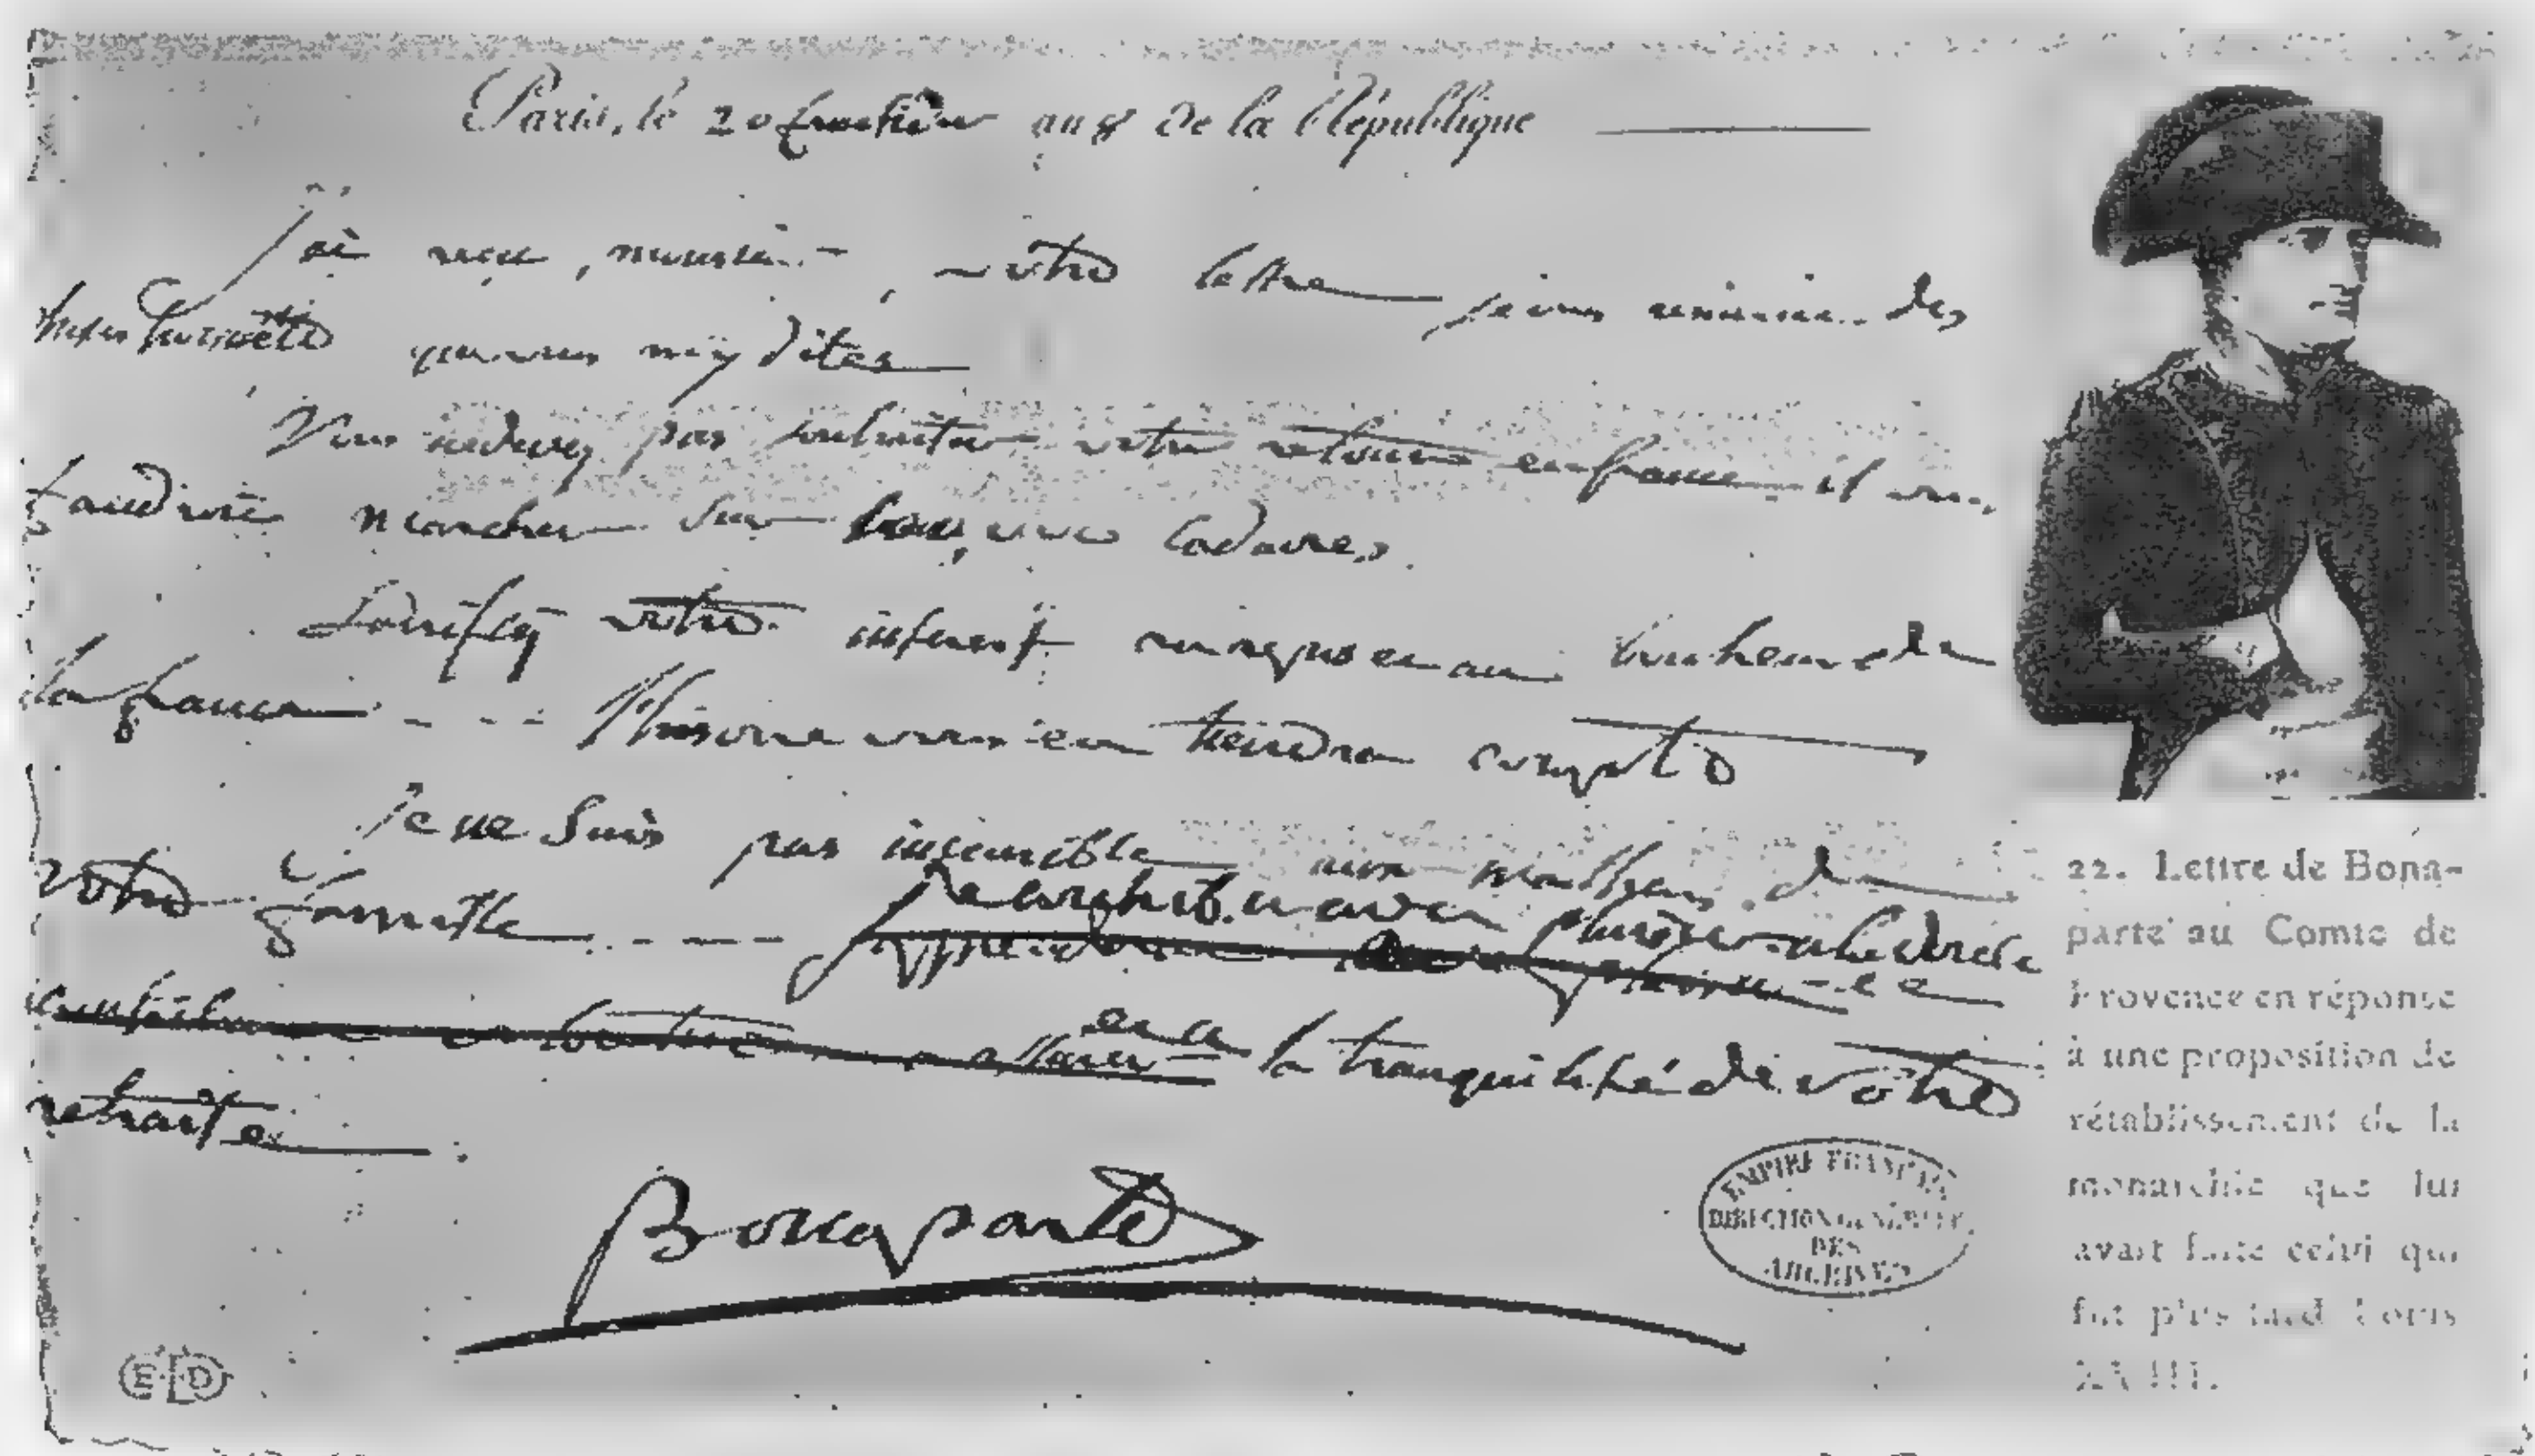 Paris, le 20 fructidor an 8 de la République
J'ai reçu, monsieur, votre lettre je vous remercie des
choses honnêtes que vous m'y dites
Vous ne devez pas souhaiter votre retour en france il vous
faudroit marcher sur cadavres.
Sacrifiez votre intérest au repos et au bonheur de
la france - - - l'histoire vous en tiendra compte
Je ne suis pas insensible aux malheurs de
votre famille - - - - je avec plaisir
contribuerai la tranquilité de votre
retraite
Bonaparte
EMPIRE FRANÇAIS
DIRECTION GÉNÉRALE
DES
ARCHIVES
ELD
22. Lettre de Bona-
parte au Comte de
Provence en réponse
à une proposition de
rétablissement de la
monarchie que lui
avait faite celui qui
fut plus tard Louis
XVIII.